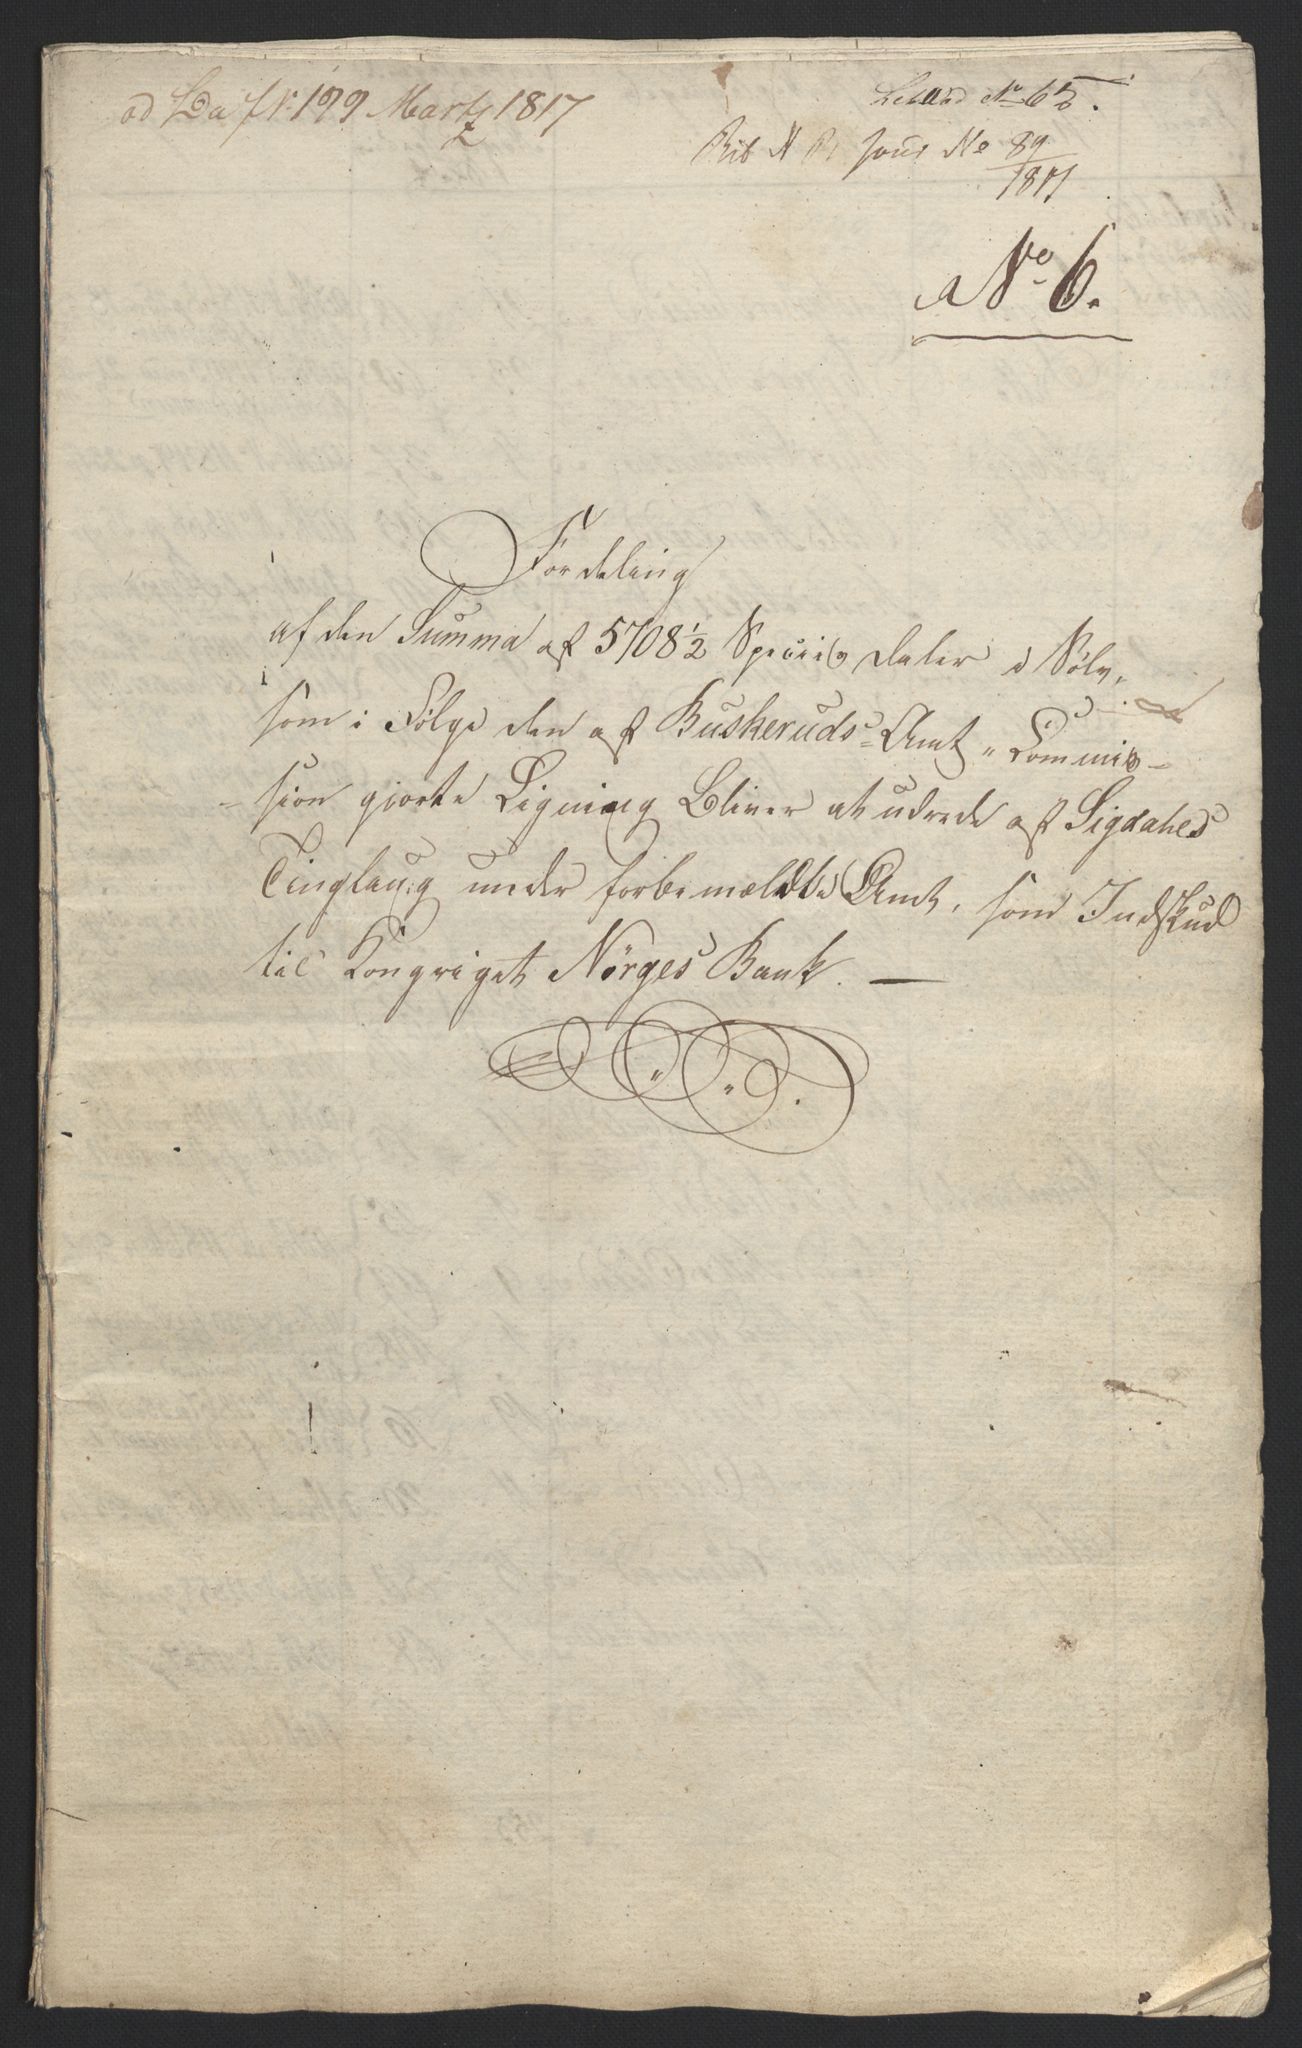 ad La f N: 199 Martz 1817
No 65.
Rib N B Jour No 89/1817
No 6.
Fordeling
af den Summa af 5708½ Speciis Daler i Sølv,
som i Følge den af Buskeruds=Amt„ Commis-
-sion giorte Ligning bliver at udrede af Sigdahls
Tinglaug under forbemældte Amt, som Indskud
til Kongriget Norges Bank. —